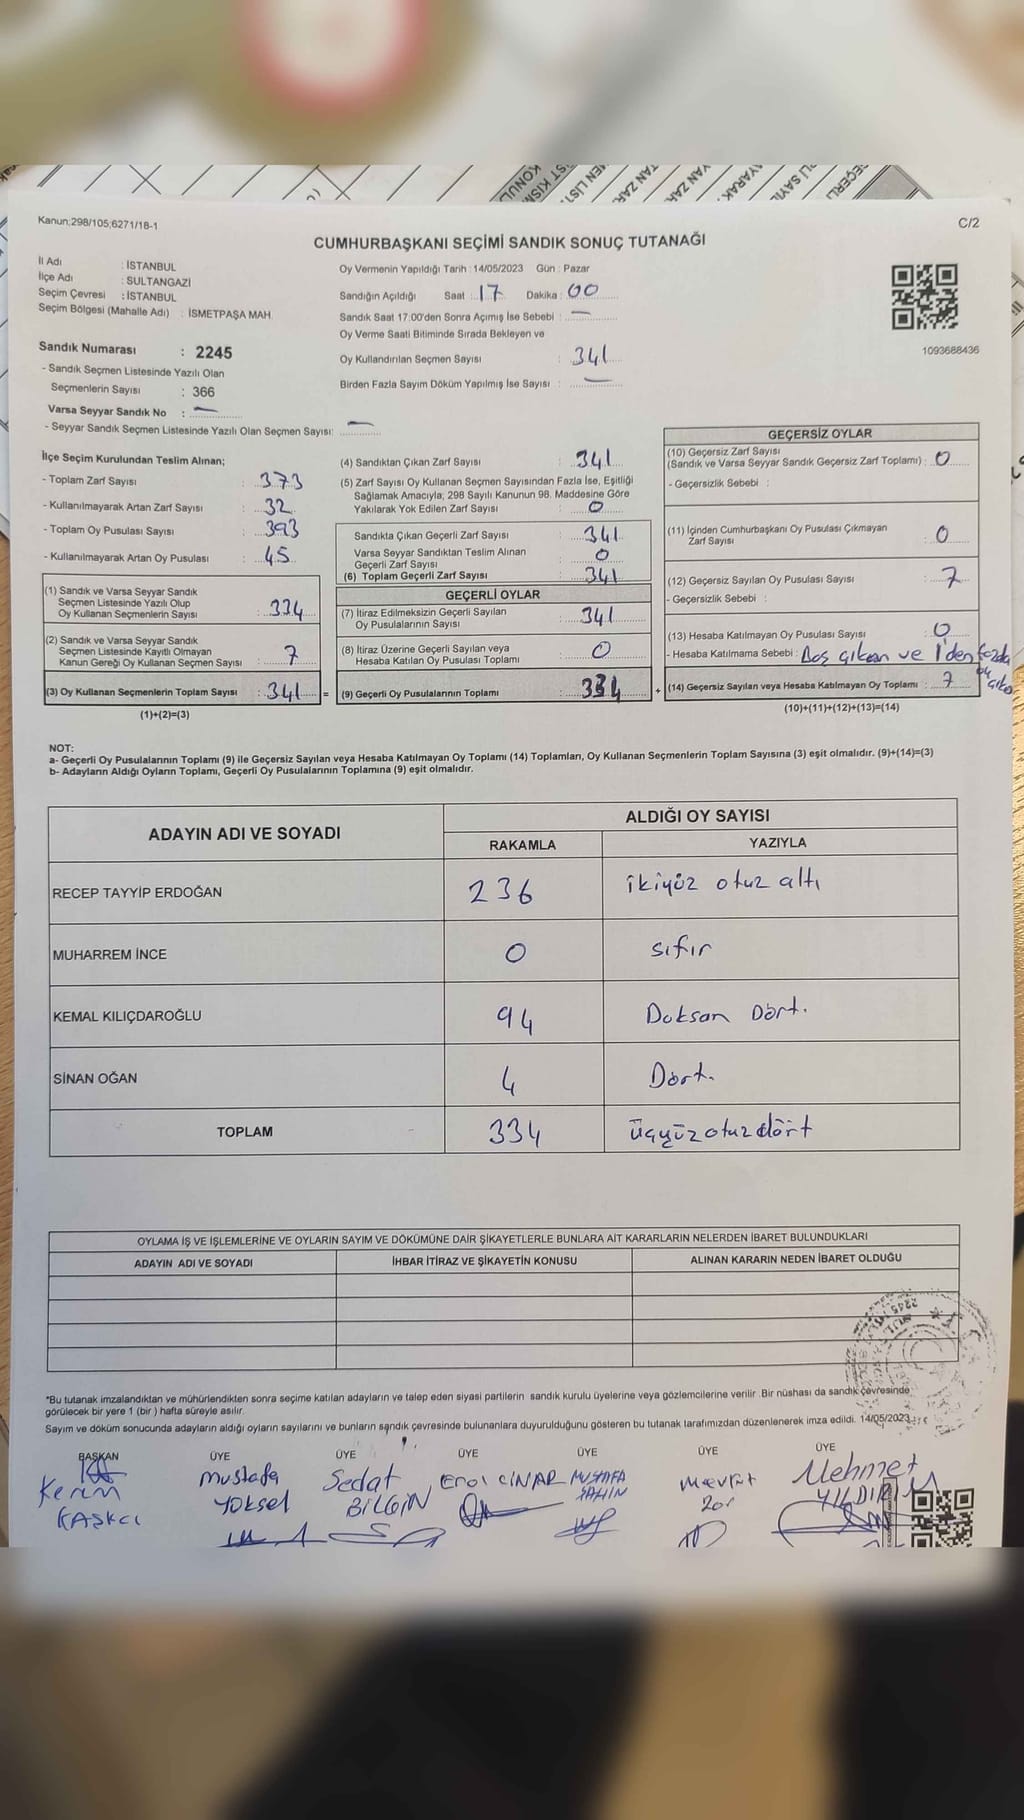 Kanun;298/105;6271/18-1
C/2
CUMHURBAŞKANI SEÇİMİ SANDIK SONUÇ TUTANAĞI
İl Adı : İSTANBUL
İlçe Adı : SULTANGAZİ
Seçim Çevresi : İSTANBUL
Seçim Bölgesi (Mahalle Adı) : İSMETPAŞA MAH.
Sandık Numarası : 2245
- Sandık Seçmen Listesinde Yazılı Olan
Seçmenlerin Sayısı : 366
Varsa Seyyar Sandık No : —
- Seyyar Sandık Seçmen Listesinde Yazılı Olan Seçmen Sayısı: —
Oy Vermenin Yapıldığı Tarih : 14/05/2023 Gün : Pazar
Sandığın Açıldığı Saat : 17 Dakika : 00
Sandık Saat 17:00'den Sonra Açımış İse Sebebi : —
Oy Verme Saati Bitiminde Sırada Bekleyen ve
Oy Kullandırılan Seçmen Sayısı : 341
Birden Fazla Sayım Döküm Yapılmış İse Sayısı : —
1093688436
İlçe Seçim Kurulundan Teslim Alınan;
- Toplam Zarf Sayısı : 373
- Kullanılmayarak Artan Zarf Sayısı : 32
- Toplam Oy Pusulası Sayısı : 393
- Kullanılmayarak Artan Oy Pusulası : 45
(1) Sandık ve Varsa Seyyar Sandık
Seçmen Listesinde Yazılı Olup
Oy Kullanan Seçmenlerin Sayısı : 334
(2) Sandık ve Varsa Seyyar Sandık
Seçmen Listesinde Kayıtlı Olmayan
Kanun Gereği Oy Kullanan Seçmen Sayısı : 7
(3) Oy Kullanan Seçmenlerin Toplam Sayısı : 341 =
(1)+(2)=(3)
(4) Sandıktan Çıkan Zarf Sayısı : 341
(5) Zarf Sayısı Oy Kullanan Seçmen Sayısından Fazla İse, Eşitliği
Sağlamak Amacıyla; 298 Sayılı Kanunun 98. Maddesine Göre
Yakılarak Yok Edilen Zarf Sayısı : 0
Sandıkta Çıkan Geçerli Zarf Sayısı : 341
Varsa Seyyar Sandıktan Teslim Alınan
Geçerli Zarf Sayısı : 0
(6) Toplam Geçerli Zarf Sayısı : 341
GEÇERLİ OYLAR
(7) İtiraz Edilmeksizin Geçerli Sayılan
Oy Pusulalarının Sayısı : 341
(8) İtiraz Üzerine Geçerli Sayılan veya
Hesaba Katılan Oy Pusulası Toplamı : 0
(9) Geçerli Oy Pusulalarının Toplamı : 334 +
GEÇERSİZ OYLAR
(10) Geçersiz Zarf Sayısı
(Sandık ve Varsa Seyyar Sandık Geçersiz Zarf Toplamı) : 0
- Geçersizlik Sebebi :
(11) İçinden Cumhurbaşkanı Oy Pusulası Çıkmayan
Zarf Sayısı : 0
(12) Geçersiz Sayılan Oy Pusulası Sayısı : 7
- Geçersizlik Sebebi :
(13) Hesaba Katılmayan Oy Pusulası Sayısı : 0
- Hesaba Katılmama Sebebi : Boş çıkan ve 1'den fazda
oy çıka
(14) Geçersiz Sayılan veya Hesaba Katılmayan Oy Toplamı : 7
(10)+(11)+(12)+(13)=(14)
NOT:
a- Geçerli Oy Pusulalarının Toplamı (9) ile Geçersiz Sayılan veya Hesaba Katılmayan Oy Toplamı (14) Toplamları, Oy Kullanan Seçmenlerin Toplam Sayısına (3) eşit olmalıdır. (9)+(14)=(3)
b- Adayların Aldığı Oyların Toplamı, Geçerli Oy Pusulalarının Toplamına (9) eşit olmalıdır.
ADAYIN ADI VE SOYADI
ALDIĞI OY SAYISI
RAKAMLA YAZIYLA
RECEP TAYYİP ERDOĞAN 236 ikiyüz otuz altı
MUHARREM İNCE 0 sıfır
KEMAL KILIÇDAROĞLU 94 Doksan Dört.
SİNAN OĞAN 4 Dört.
TOPLAM 334 üçyüzotuzdört
OYLAMA İŞ VE İŞLEMLERİNE VE OYLARIN SAYIM VE DÖKÜMÜNE DAİR ŞİKAYETLERLE BUNLARA AİT KARARLARIN NELERDEN İBARET BULUNDUKLARI
ADAYIN ADI VE SOYADI İHBAR İTİRAZ VE ŞİKAYETİN KONUSU ALINAN KARARIN NEDEN İBARET OLDUĞU
*Bu tutanak imzalandıktan ve mühürlendikten sonra seçime katılan adayların ve talep eden siyasi partilerin sandık kurulu üyelerine veya gözlemcilerine verilir .Bir nüshası da sandık çevresinde
görülecek bir yere 1 (bir ) hafta süreyle asılır.
Sayım ve döküm sonucunda adayların aldığı oyların sayılarını ve bunların sandık çevresinde bulunanlara duyurulduğunu gösteren bu tutanak tarafımızdan düzenlenerek imza edildi. 14/05/2023
BAŞKAN ÜYE ÜYE ÜYE ÜYE ÜYE ÜYE
Kerim KAŞKCI
Mustafa YÜKSEL
Sedat BİLGİN
Erol ÇINAR
MUSTAFA ŞAHİN
Mevlüt Zor
Mehmet YILDIRIM